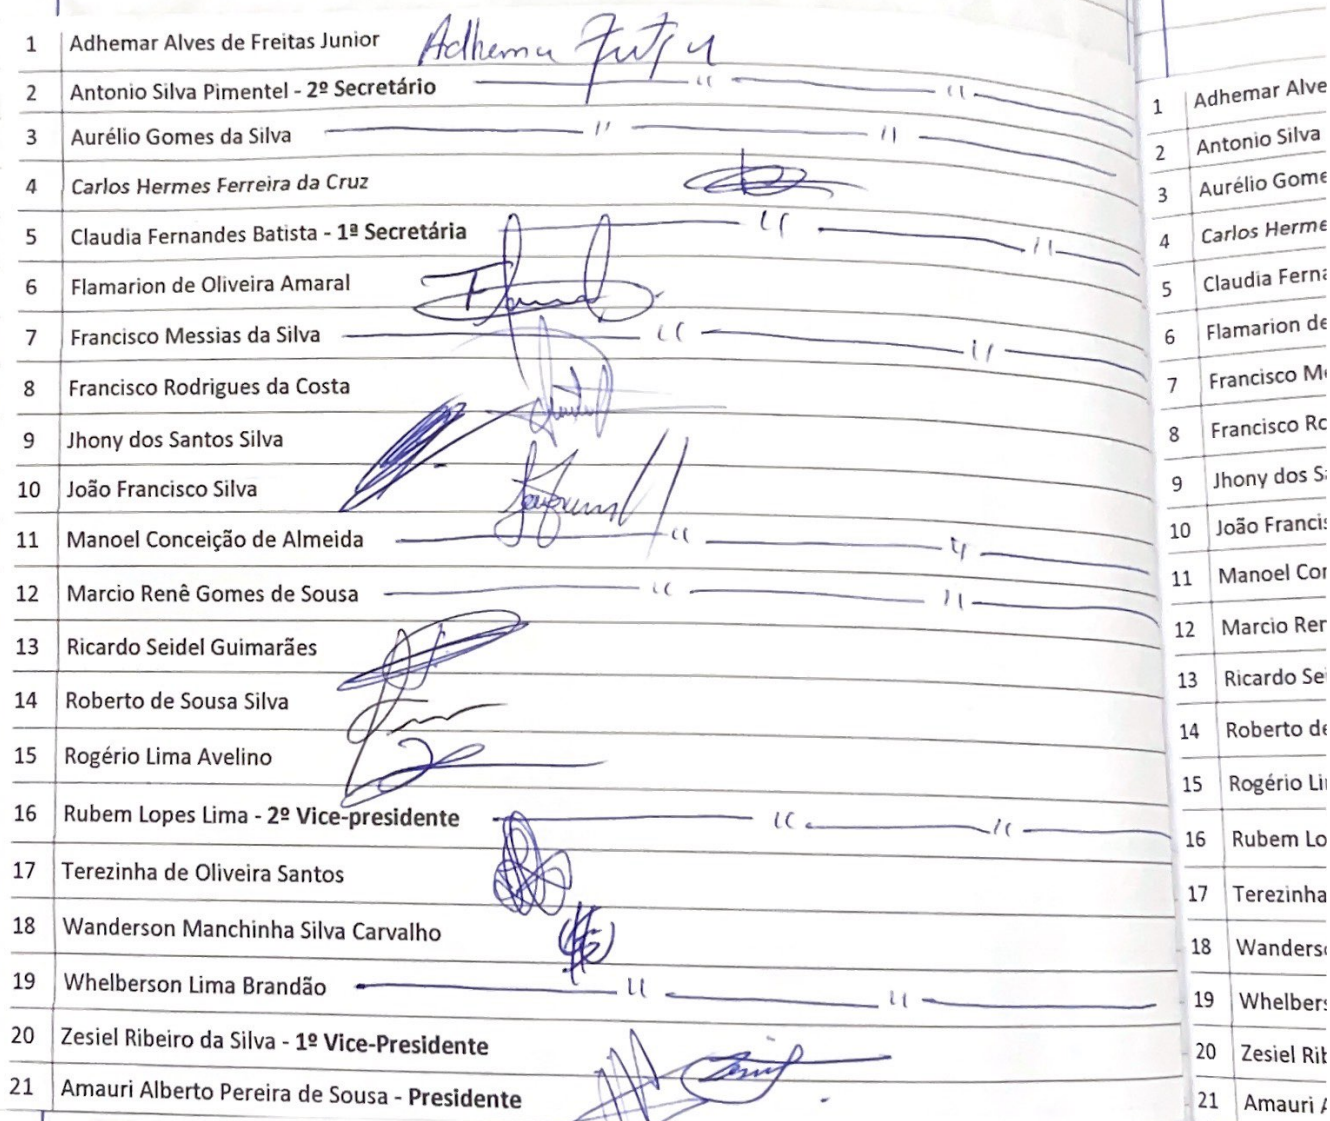 1 Adhemar Alves de Freitas Junior Adhemar
2 Antonio Silva Pimentel - 2º Secretário
3 Aurélio Gomes da Silva
4 Carlos Hermes Ferreira da Cruz
5 Claudia Fernandes Batista - 1ª Secretária
6 Flamarion de Oliveira Amaral
7 Francisco Messias da Silva
8 Francisco Rodrigues da Costa
9 Jhony dos Santos Silva
10 João Francisco Silva
11 Manoel Conceição de Almeida
12 Marcio Renê Gomes de Sousa
13 Ricardo Seidel Guimarães
14 Roberto de Sousa Silva
15 Rogério Lima Avelino
16 Rubem Lopes Lima - 2º Vice-presidente
17 Terezinha de Oliveira Santos
18 Wanderson Manchinha Silva Carvalho
19 Whelberson Lima Brandão
20 Zesiel Ribeiro da Silva - 1º Vice-Presidente
21 Amauri Alberto Pereira de Sousa - Presidente
1 Adhemar Alve
2 Antonio Silva
3 Aurélio Gome
4 Carlos Herme
5 Claudia Ferna
6 Flamarion de
7 Francisco Me
8 Francisco Ro
9 Jhony dos Sa
10 João Francis
11 Manoel Con
12 Marcio Ren
13 Ricardo Sei
14 Roberto de
15 Rogério Lim
16 Rubem Lo
17 Terezinha
18 Wanderso
19 Whelbers
20 Zesiel Rib
21 Amauri A